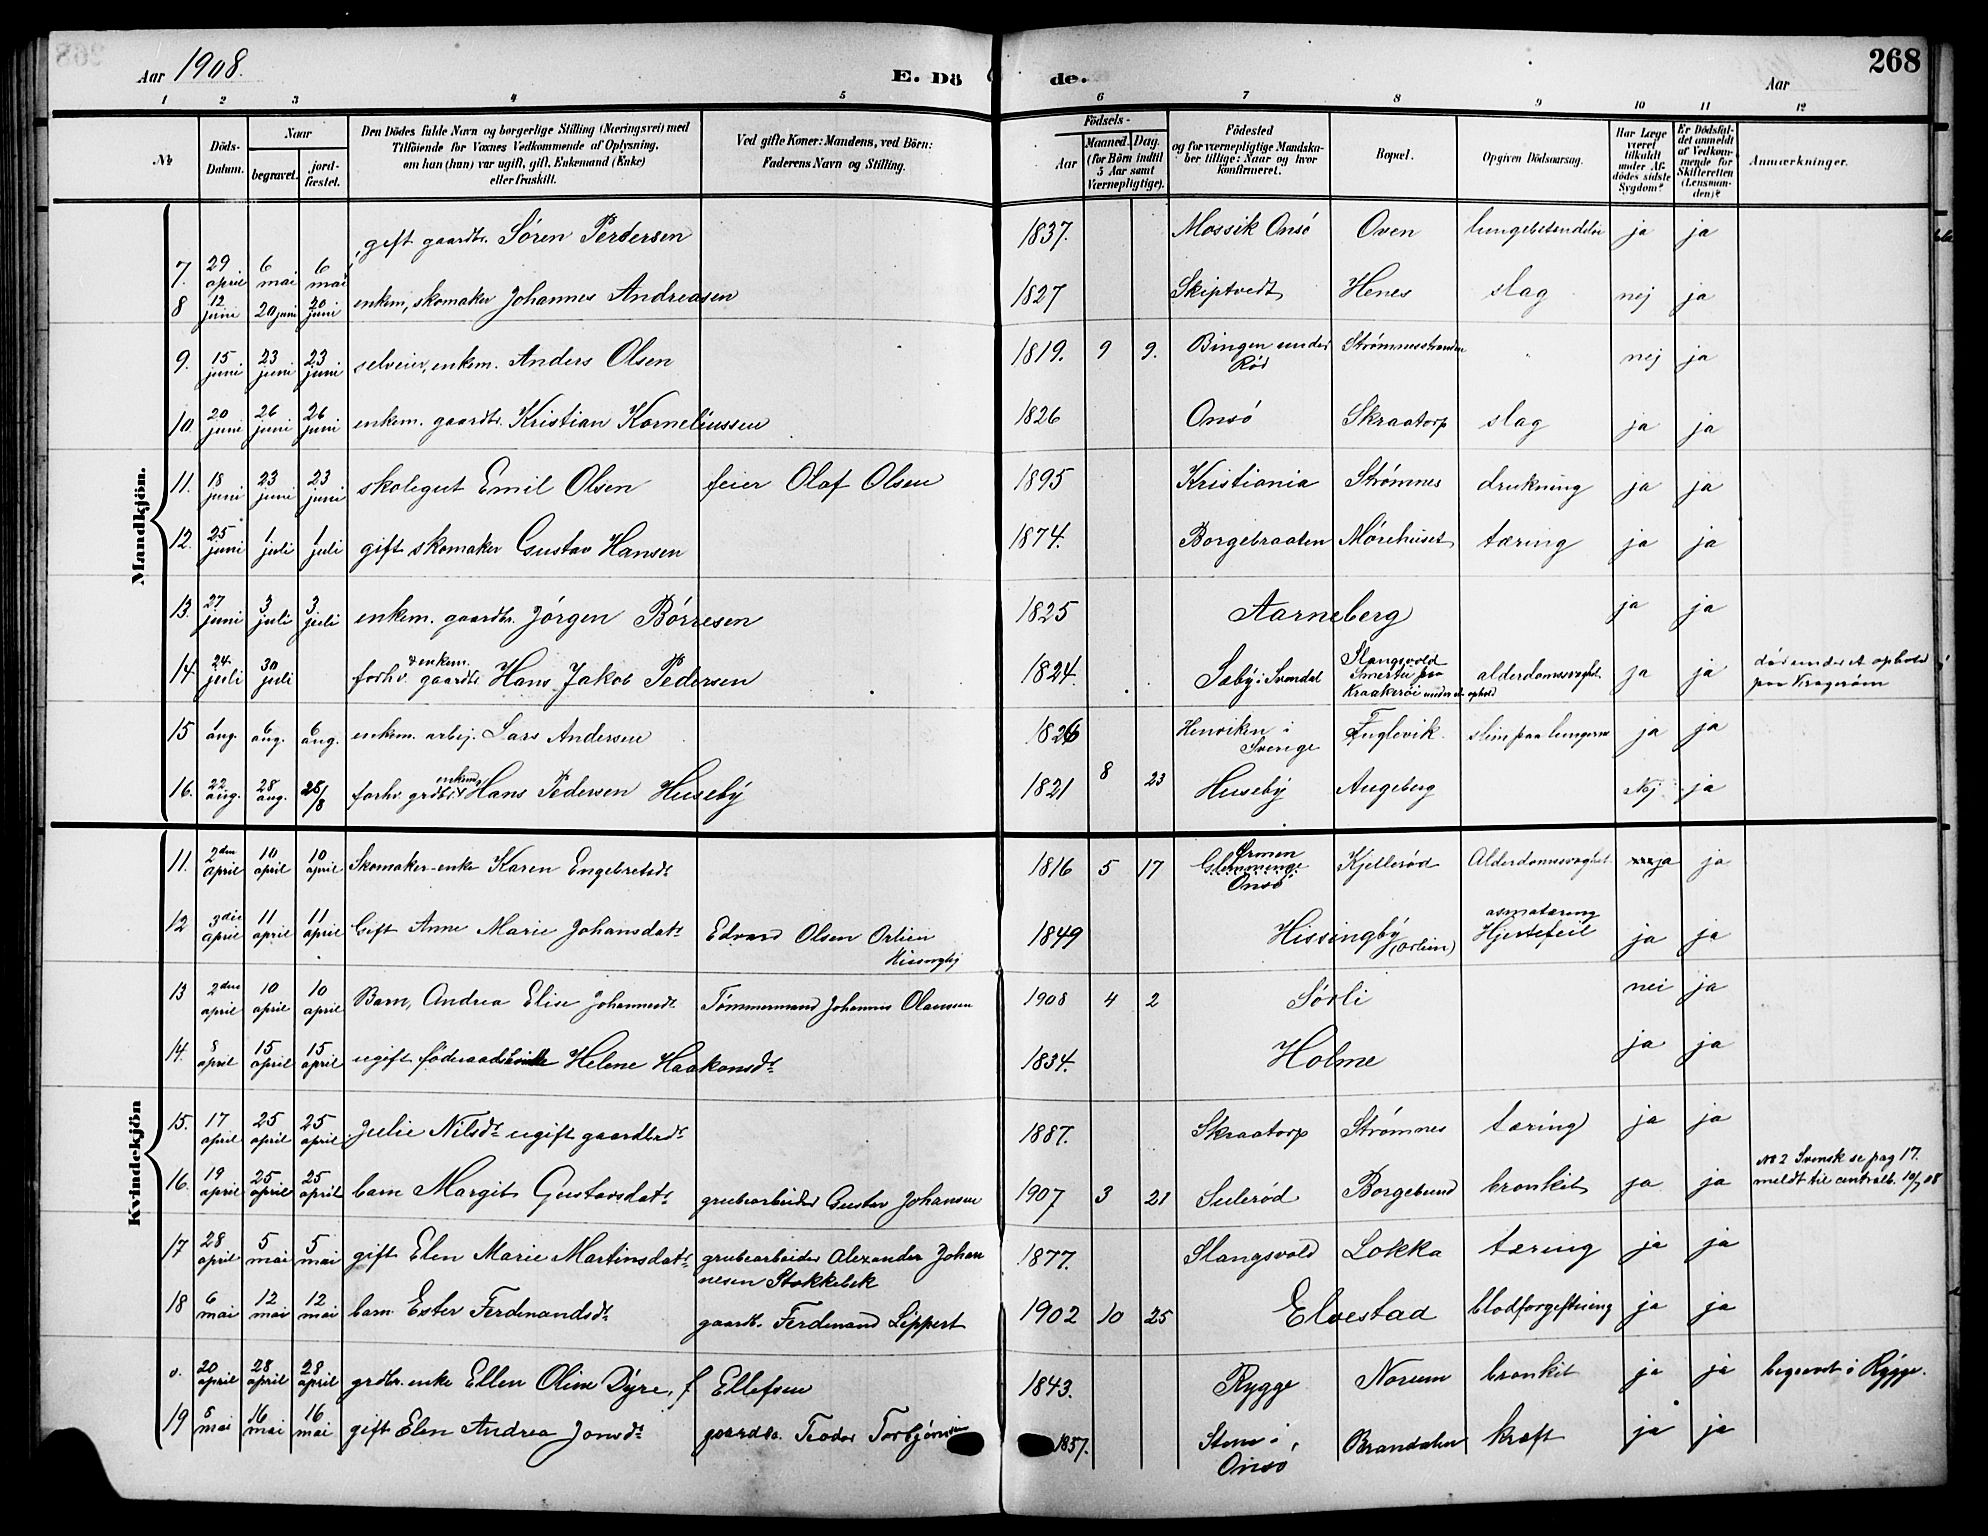 268
Aar 1908.
E. Dö de.
Aar
1 2 3 4 5 6 7 8 9 10 11 12
No
Döds-Datum.
Naar
begravet.
jord-fæstet.
Den Dödes fulde Navn og borgerlige Stilling (Næringsvei) med
Tilföiende for Voxnes Vedkommende af Oplysning,
om han (hun) var ugift, gift, Enkemand (Enke)
eller fraskilt.
Ved gifte Koner: Mandens, ved Börn:
Faderens Navn og Stilling.
Födsels-
Aar
Maaned. Dag.
(for Börn indtil
5 Aar samt
Værnepligtige).
Födested
og for værnepligtige Mandska-
ber tillige: Naar og hvor
konfirmeret.
Bopæl.
Opgiven Dödsaarsag.
Har Læge
været
tilkaldt
under Af-
dödes sidste
Sygdom?
Er Dödsfal-
det anmeldt
af Vedkom-
mende for
Skifteretten
(Lensman-
den)?
Anmærkninger.
Mandkjön.
7. 29 april 6 mai 6 mai gift gaardbr. Sören Pedersen 1837. Mossik Onsö Oven lungebetendelse ja ja
8 12 juni 20 juni 20 juni enkem, skomaker Johannes Andreasen 1827 Skiptvedt Henes slag nej ja
9. 15 juni 23 juni 23 juni selveier, enkem. Anders Olsen 1819. 9 9. Bingen under Röd Strømnesstranden " nej ja
10 20 juni 26 juni 26 juni enkem. gaardbr. Kristian Korneliussen 1826 Onsö Skraatorp slag ja ja
11. 18 juni 23 juni 23 juni skolegut Emil Olsen feier Olaf Olsen 1895 Kristiania Strømnes drukning ja ja
12. 25 juni 1 juli 1 juli gift skomaker Gustav Hansen 1874. Borgebraaten Mørehuset tæring ja ja
13. 27 juni 3 juli 3 juli enkem. gaardbr. Jörgen Börresen 1825 Aarneberg ja ja
14. 24 juli 30 juli forhv. & enkem. gaardbr Hans Jakob Pedersen 1824. Saby i Svendal Slangsvold Smertu paa Kraakerøi under et ophold alderdomssvaghet. ja ja död under et ophold paa Kragerøm
15 1 aug. 6 aug. 6 aug. enkem. arbej. Lars Andersen 1826 Henviken i Sverige Fuglevik. slim paa lungerne ja ja
16. 22 aug. 28 aug. 28/8 forhv. grdbr. enkem. Hans Pedersen Huseby 1821 8 23 Huseby Augeberg Nej ja
Kvindekjön
11. 2den april 10 april 10 april Skomaker-enke Karen Engebretsdt 1816 5 17 Ørmen Glemminge Onsö Kjellerød Alderdomssvaghet ja ja
12 3die april 11 april 11 april Gift Anne Marie Johansdatr Edvard Olsen Orlien Hissingby 1849 Hissingby (Orlien) asmatæring Hjertefeil ja ja
13 2den april 10 april 10 april Barn, Andrea Elise Johannesdt Tömmermand Johannes Olaussen 1908 4 2 Sörli nei ja
14. 8 april 15 april 15 april ugift föderaads Helene Haakonsdt 1834. Holme ja ja
15. 17 april 25 april 25 april Julie Nilsdt ugift gaardbrdt 1887. Skraatorp Strømnes tæring ja ja
16. 19 april 25 april 25 april barn Margit Gustavsdatr grubearbeider Gustav Johansen 1907 3 21 Sulerød Borgebund bronkit ja ja No 2 Svensk se pag 17. meldt til centralb. 10/7 08
17 28 april 5 mai 5 mai gift Elen Marie Martinsdatr grubearbeider Alexander Johannesen Stokkebek 1877. Slangsvold Lokka tæring ja ja
18 6 mai 12 mai 12 mai barn Ester Ferdinandsdt gaardb. Ferdinand Lippert 1902 10 25 Elvestad blodforgiftning ja ja
o. 20 april 28 april 28 april grdbr. enke Ellen Oline Dyre, f Ellefsen 1843. Rygge Norum bronkit ja ja begravet i Rygge.
19 8 mai 16 mai 16 mai gift Elen Andrea Jonsdt gaardbr. Teodor Torbjörnsen 1857. Stene i Onsö Brandalen kræft ja ja